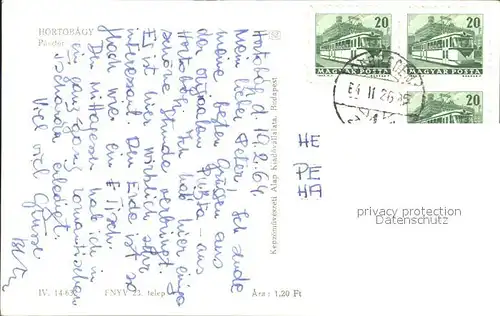 HORTOBÁGY
Pásztor
Hortobágy d. 19.2.64.
Mein lieber Peter, Ich sende
meine besten Grüssen aus
der originalen Puszta - aus
Hortobágy. Ich hab hier einige
schöne Stunde verbringt.
Es ist hier wirklich sehr
interessant. Die Erde ist so
flach wie ein Tisch.
Das Mittagessen hab ich in
ein ganz romantischen
Tscharda erledigt.
Viel viel Grüsse
Képzőművészeti Alap Kiadóvállalata, Budapest
IV. 14-63
FNYV 23. telep
Ára: 1,20 Ft
20
20
MAGYAR POSTA
MAGYAR POSTA
20
64 II 26
HE
PE
HA
privacy protection
Datenschutz